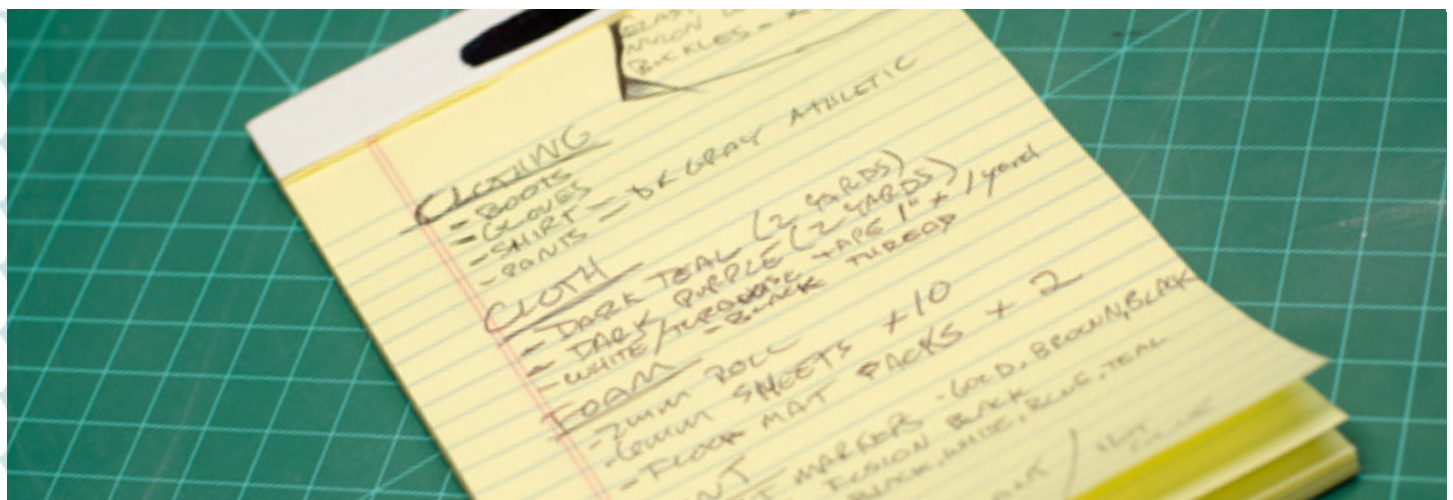 NYLON
BUCKLES -
CLOTHING
- BOOTS
- GLOVES
- SHIRT
- PANTS - DK GRAY ATHLETIC
CLOTH
- DARK TEAL (2 YARDS)
- DARK PURPLE (2 YARDS)
- WHITE/TURQUOISE TAPE 1" x 1 yard
- BLACK THREAD
FOAM
- 2mm ROLL
- 6mm SHEETS x10
- FLOOR MAT PACKS x 2
MARKERS - GOLD, BROWN, BLACK
FUSION BLACK
BLACK, WHITE, BLUE, TEAL